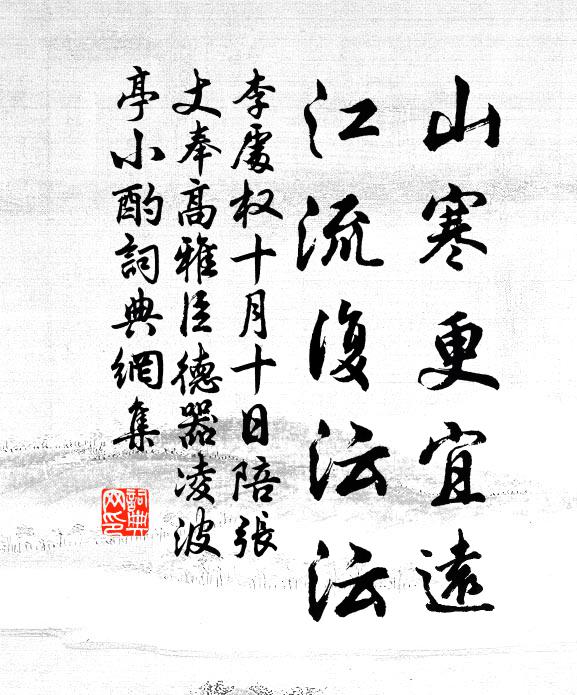 山寒更宜遠
江流復沄沄
李處权十月十日陪張
丈奉高雅臣德器凌波
亭小酌詞典網集
詞典網印